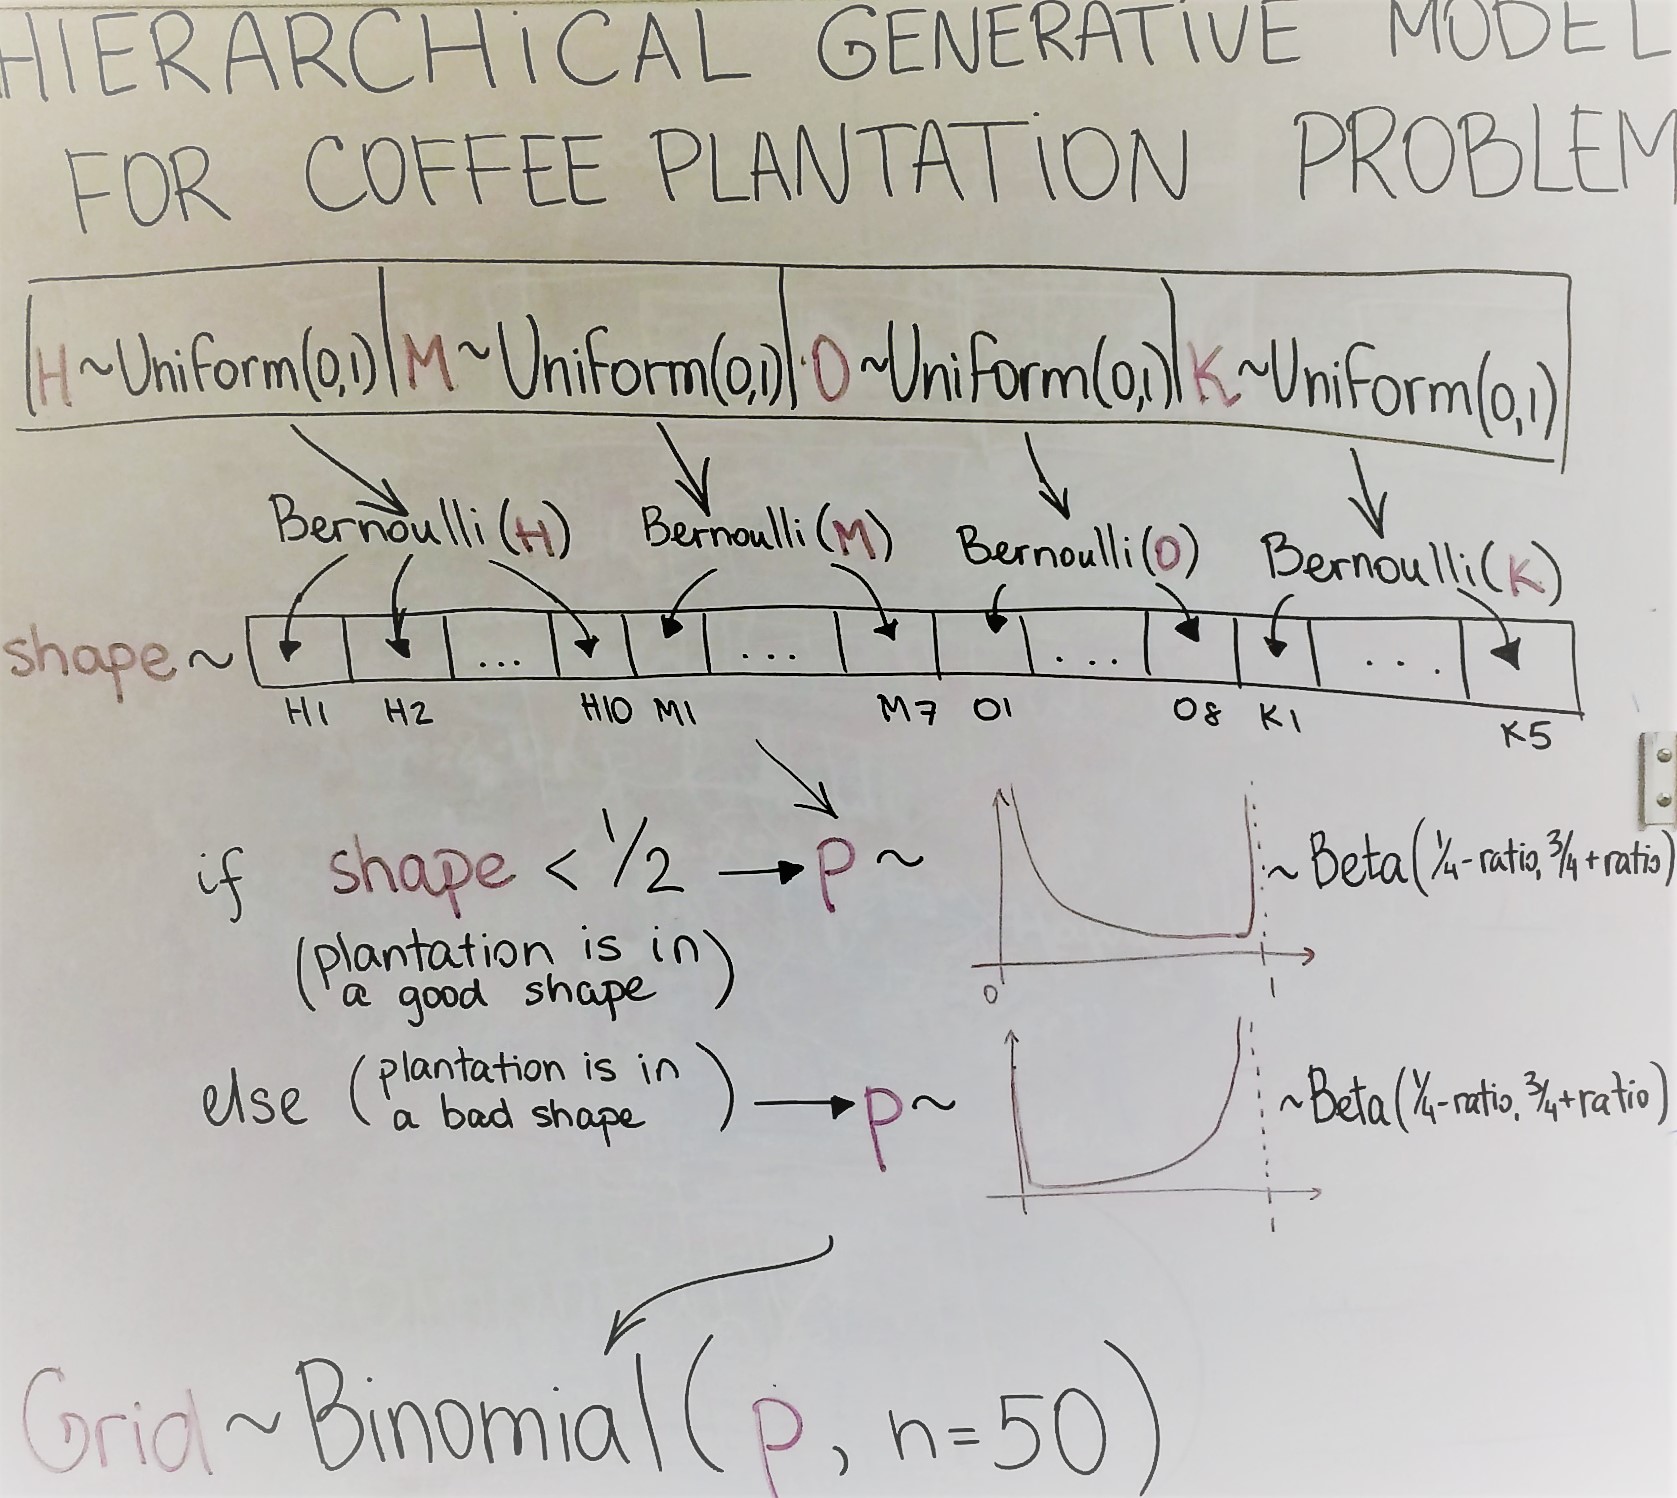 HIERARCHiCAL GENERATiVE MODEL
FOR COFFEE PLANTATiON PROBLEM
H~Uniform(0,1) M~Uniform(0,1) O~Uniform(0,1) K~Uniform(0,1)
Bernoulli(H) Bernoulli(M) Bernoulli(O) Bernoulli(K)
shape~ ... ... ... ...
H1 H2 H10 M1 M7 O1 O8 K1 K5
if shape < 1/2 → p ~ ~ Beta(1/4-ratio, 3/4+ratio)
(plantation is in
a good shape)
0 1
else (plantation is in
a bad shape) → p~ ~Beta(1/4-ratio, 3/4+ratio)
1
Grid ~ Binomial(p, n=50)